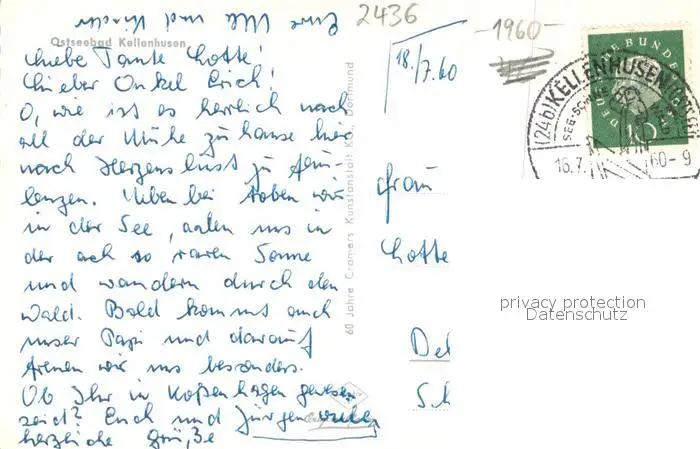 2436
-1960-
Eure Ulla und Kinder
Ostseebad Kellenhusen
18./7.60
Liebe Tante Lotte!
Lieber Onkel Erich!
O, wie ist es herrlich nach
all der Mühe zu hause hier
nach Herzenslust zu fau-
lenzen. Üben bei toben wir
in der See, aalen uns in
der ach so raren Sonne
und wandern durch den
Wald. Bald kommt auch
unser Papi und darauf
freuen wir uns besonders.
Ob Ihr in Kopenhagen gewesen
seid? Euch und Jürgen viele
herzliche Grüße
60 Jahre Cramers Kunstanstalt KG, Dortmund
Frau
Lotte
Det
Sch
DEUTSCHE BUNDESPOST
10
(24b) KELLENHUSEN (HOLST)
16.7. 60-9
privacy protection
Datenschutz